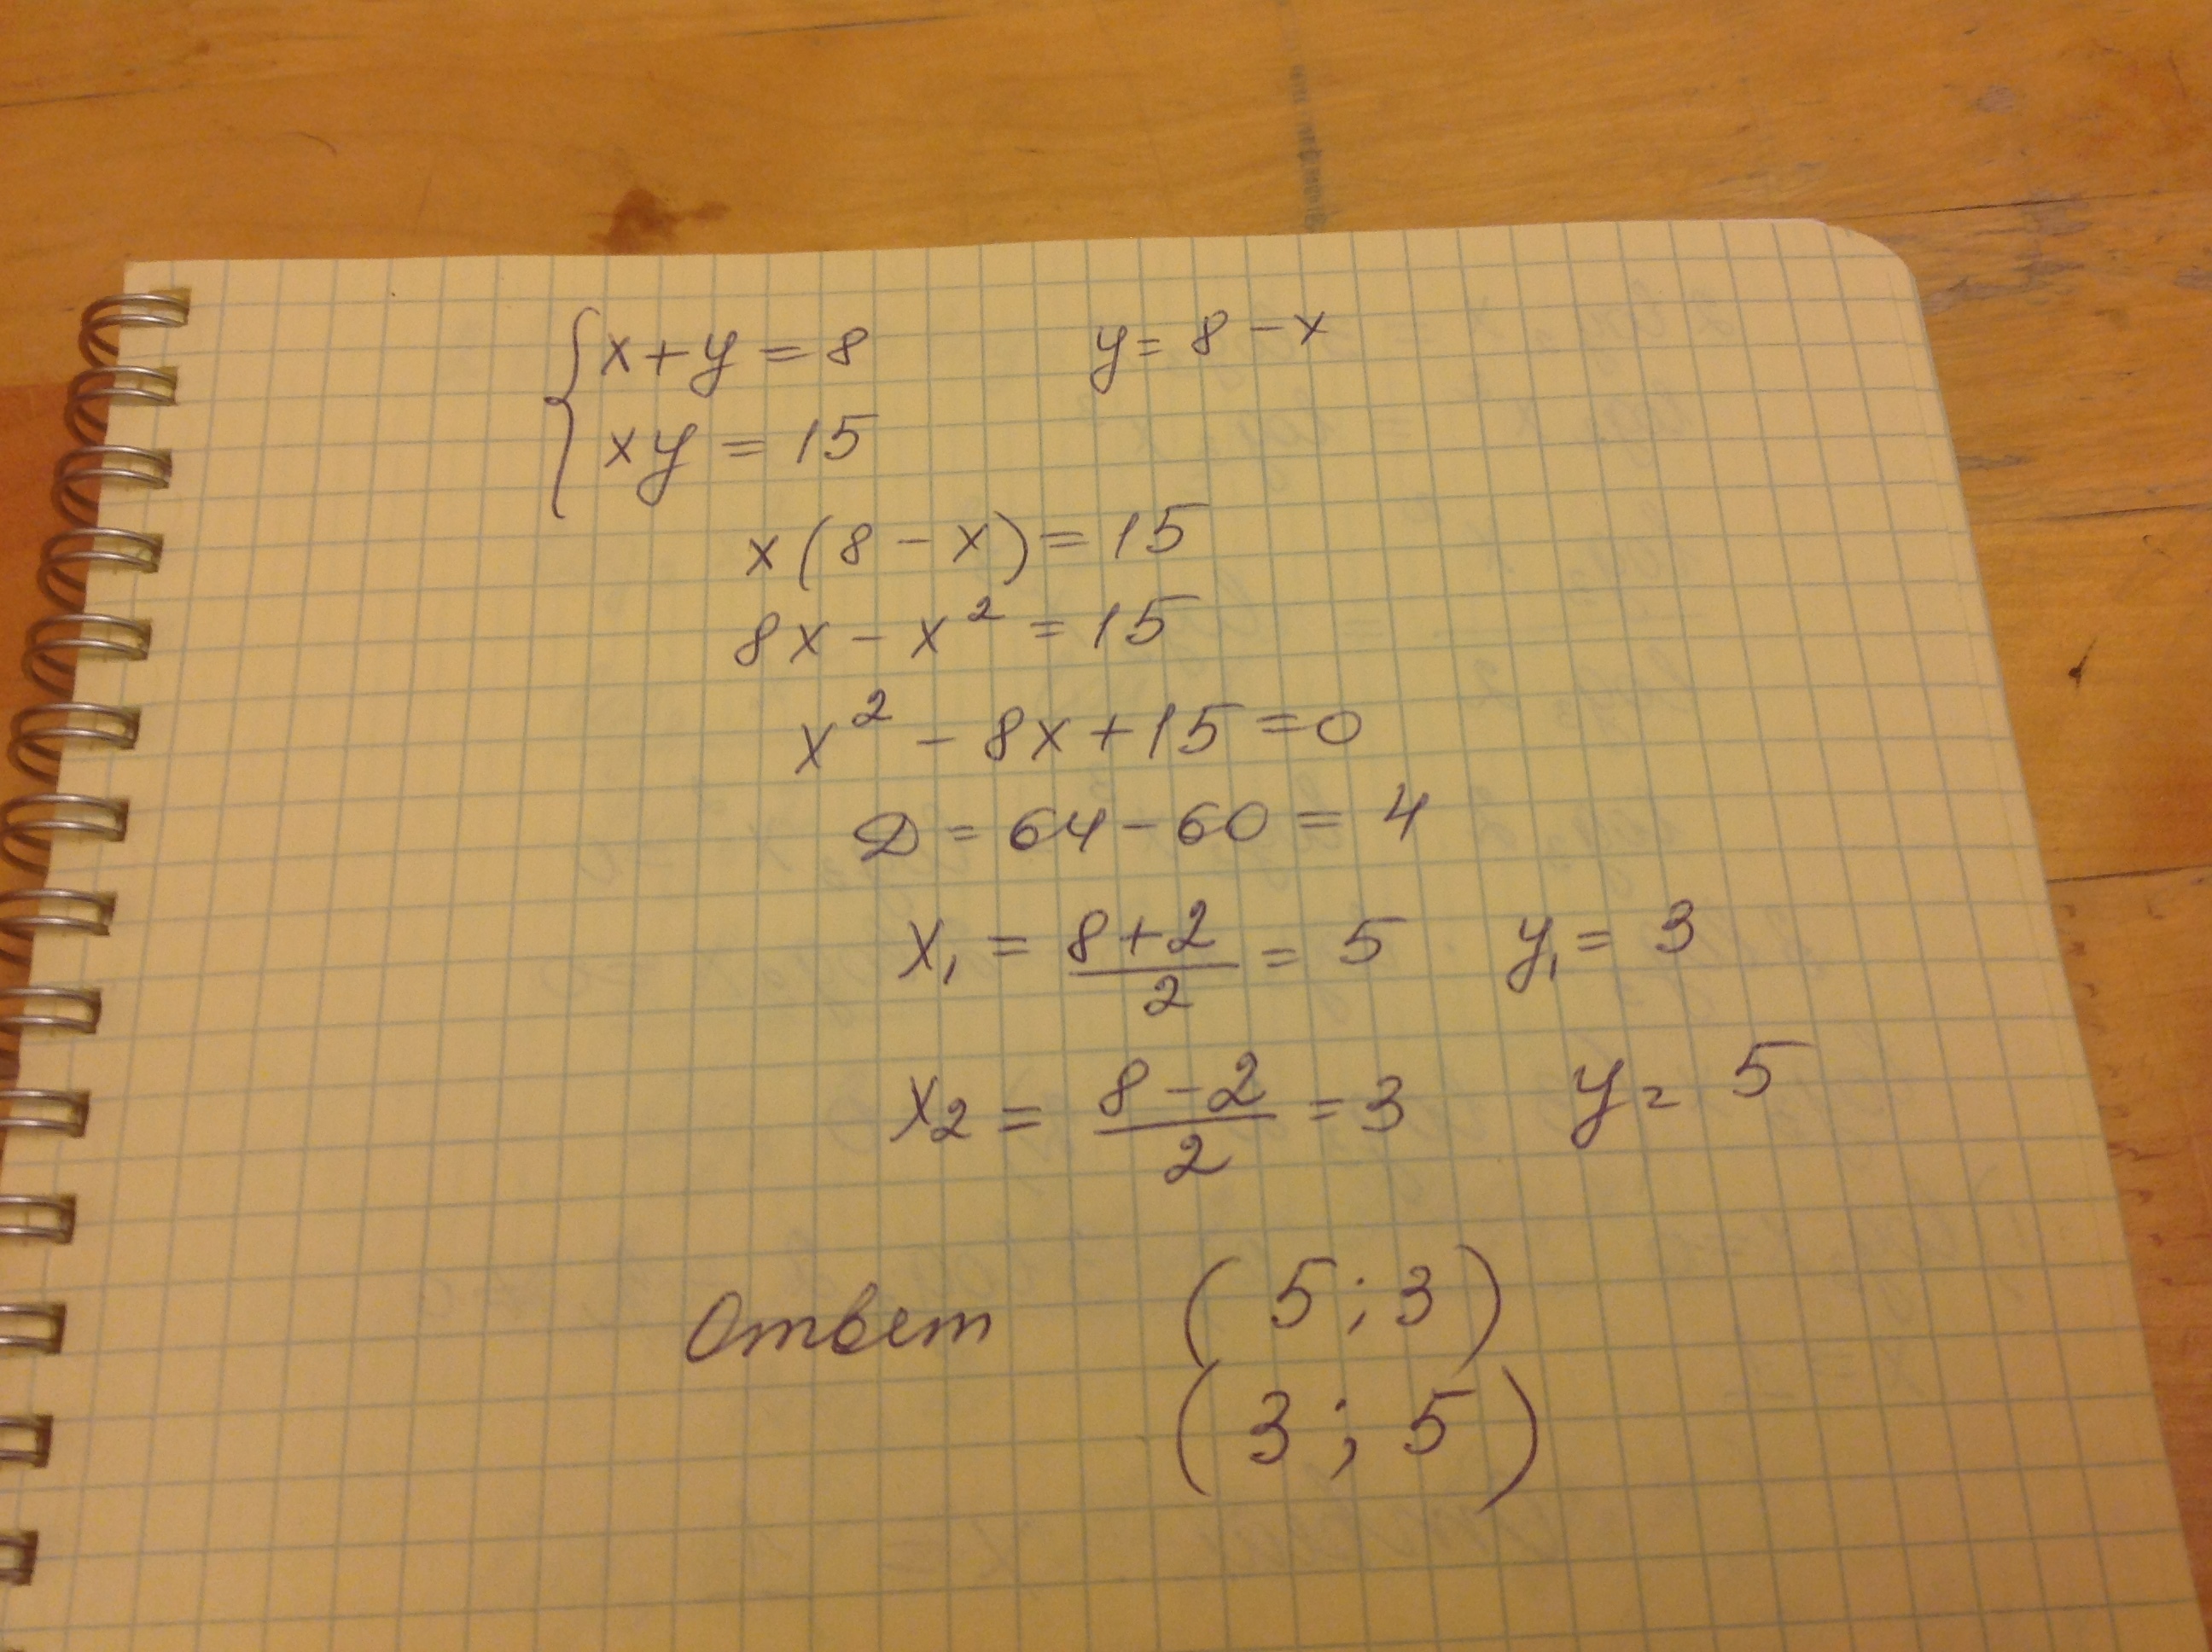 { x + y = 8     y = 8 - x
xy = 15
x(8 - x) = 15
8x - x² = 15
x² - 8x + 15 = 0
D = 64 - 60 = 4
x₁ = (8+2)/2 = 5   y₁ = 3
x₂ = (8-2)/2 = 3   y₂ 5
Ответ (5; 3)
(3; 5)